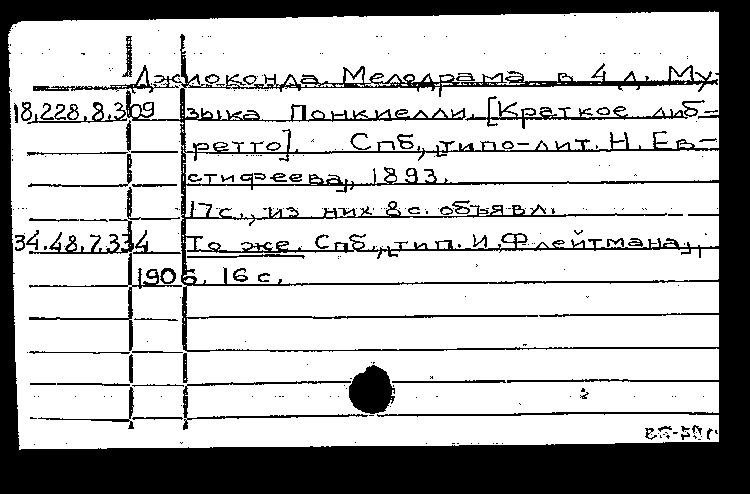 Джиоконда. Мелодрама в 4 д. Му-
18.228.8.309 зыка Понкиелли. [Краткое либ-
ретто]. Спб., типо-лит. Н. Ев-
стифеева, 1893.
17с., из них 8с. объявл.
34.48.7.334 То же. Спб., тип. И. Флейтмана,
1906. 16 с.